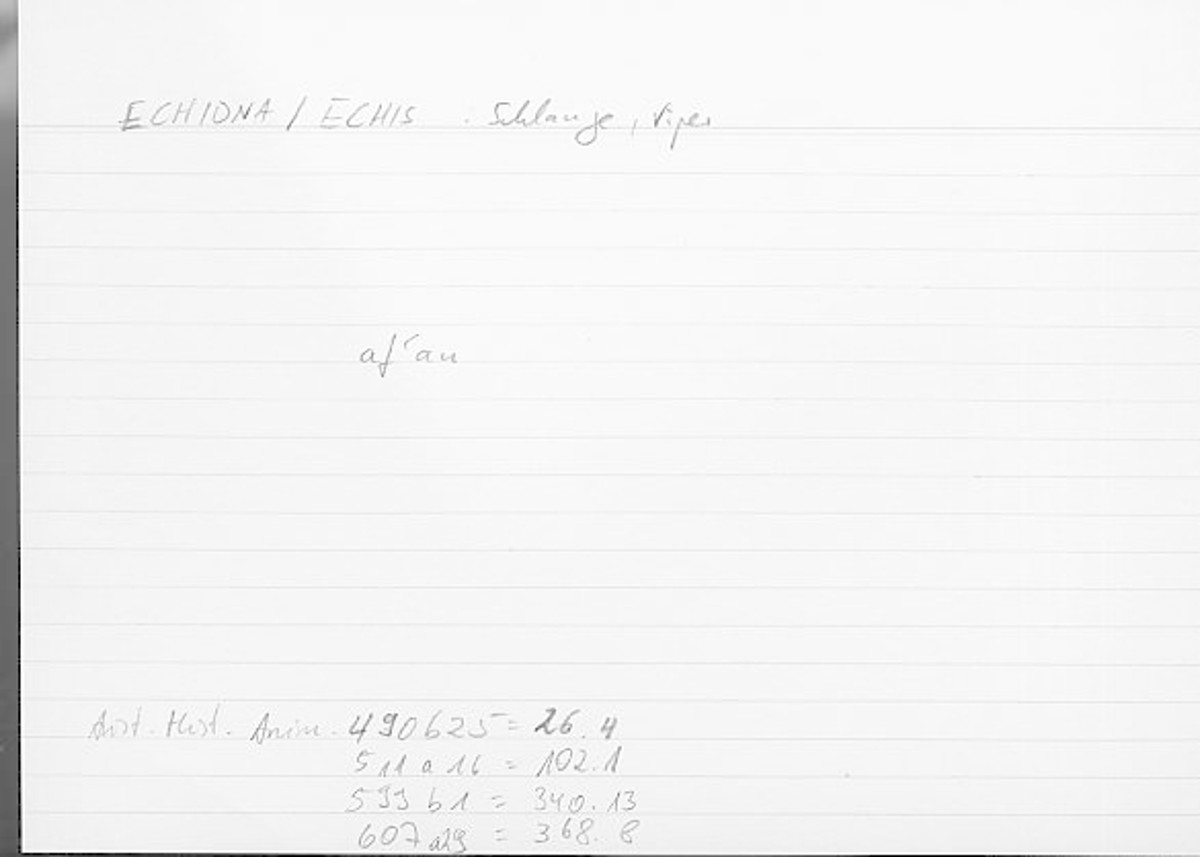 ECHIDNA / ECHIS . Schlange, Viper
afʿan
Arist. Hist. Anim. 490b25 = 26.4
511a16 = 102.1
599b1 = 340.13
607a29 = 368.8